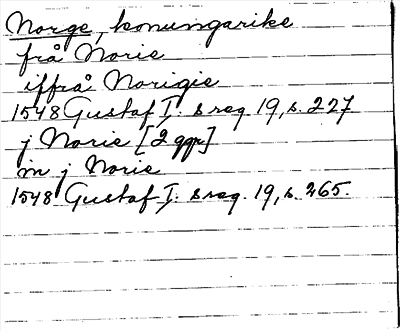 Norge, konungarike
frå Norie
iffrå Norigie
1548 Gustaf I: s reg. 19, s. 227
j Norie [2 ggr]
in j Norie
1548 Gustaf I: s reg. 19, s. 265.